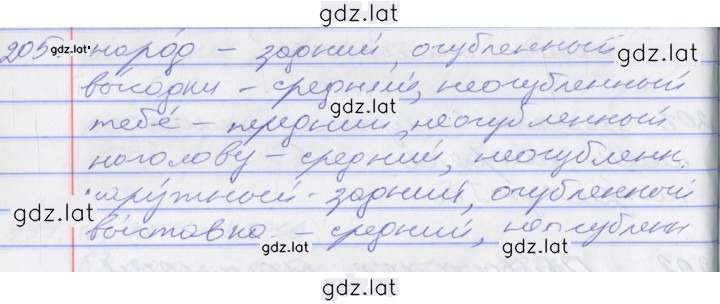 gdz.lat
205. наро́д – задний, огубленный
вы́ходки – средний, неогубленный
тебе́ – передний, неогубленный
наголову – средний, неогубленн.
нару́жный – задний, огубленный
вы́ставка – средний, неогубленн
gdz.lat
gdz.lat
gdz.lat
gdz.lat
gdz.lat
gdz.lat
gdz.lat